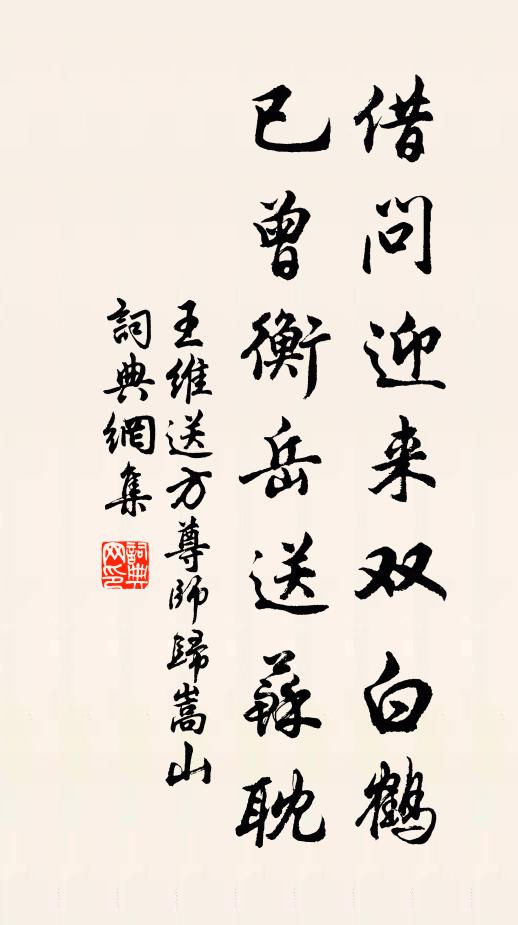 借问迎来双白鹤
已曾衡岳送蘇耽
王维送方尊师歸嵩山
詞典網集
詞典网印